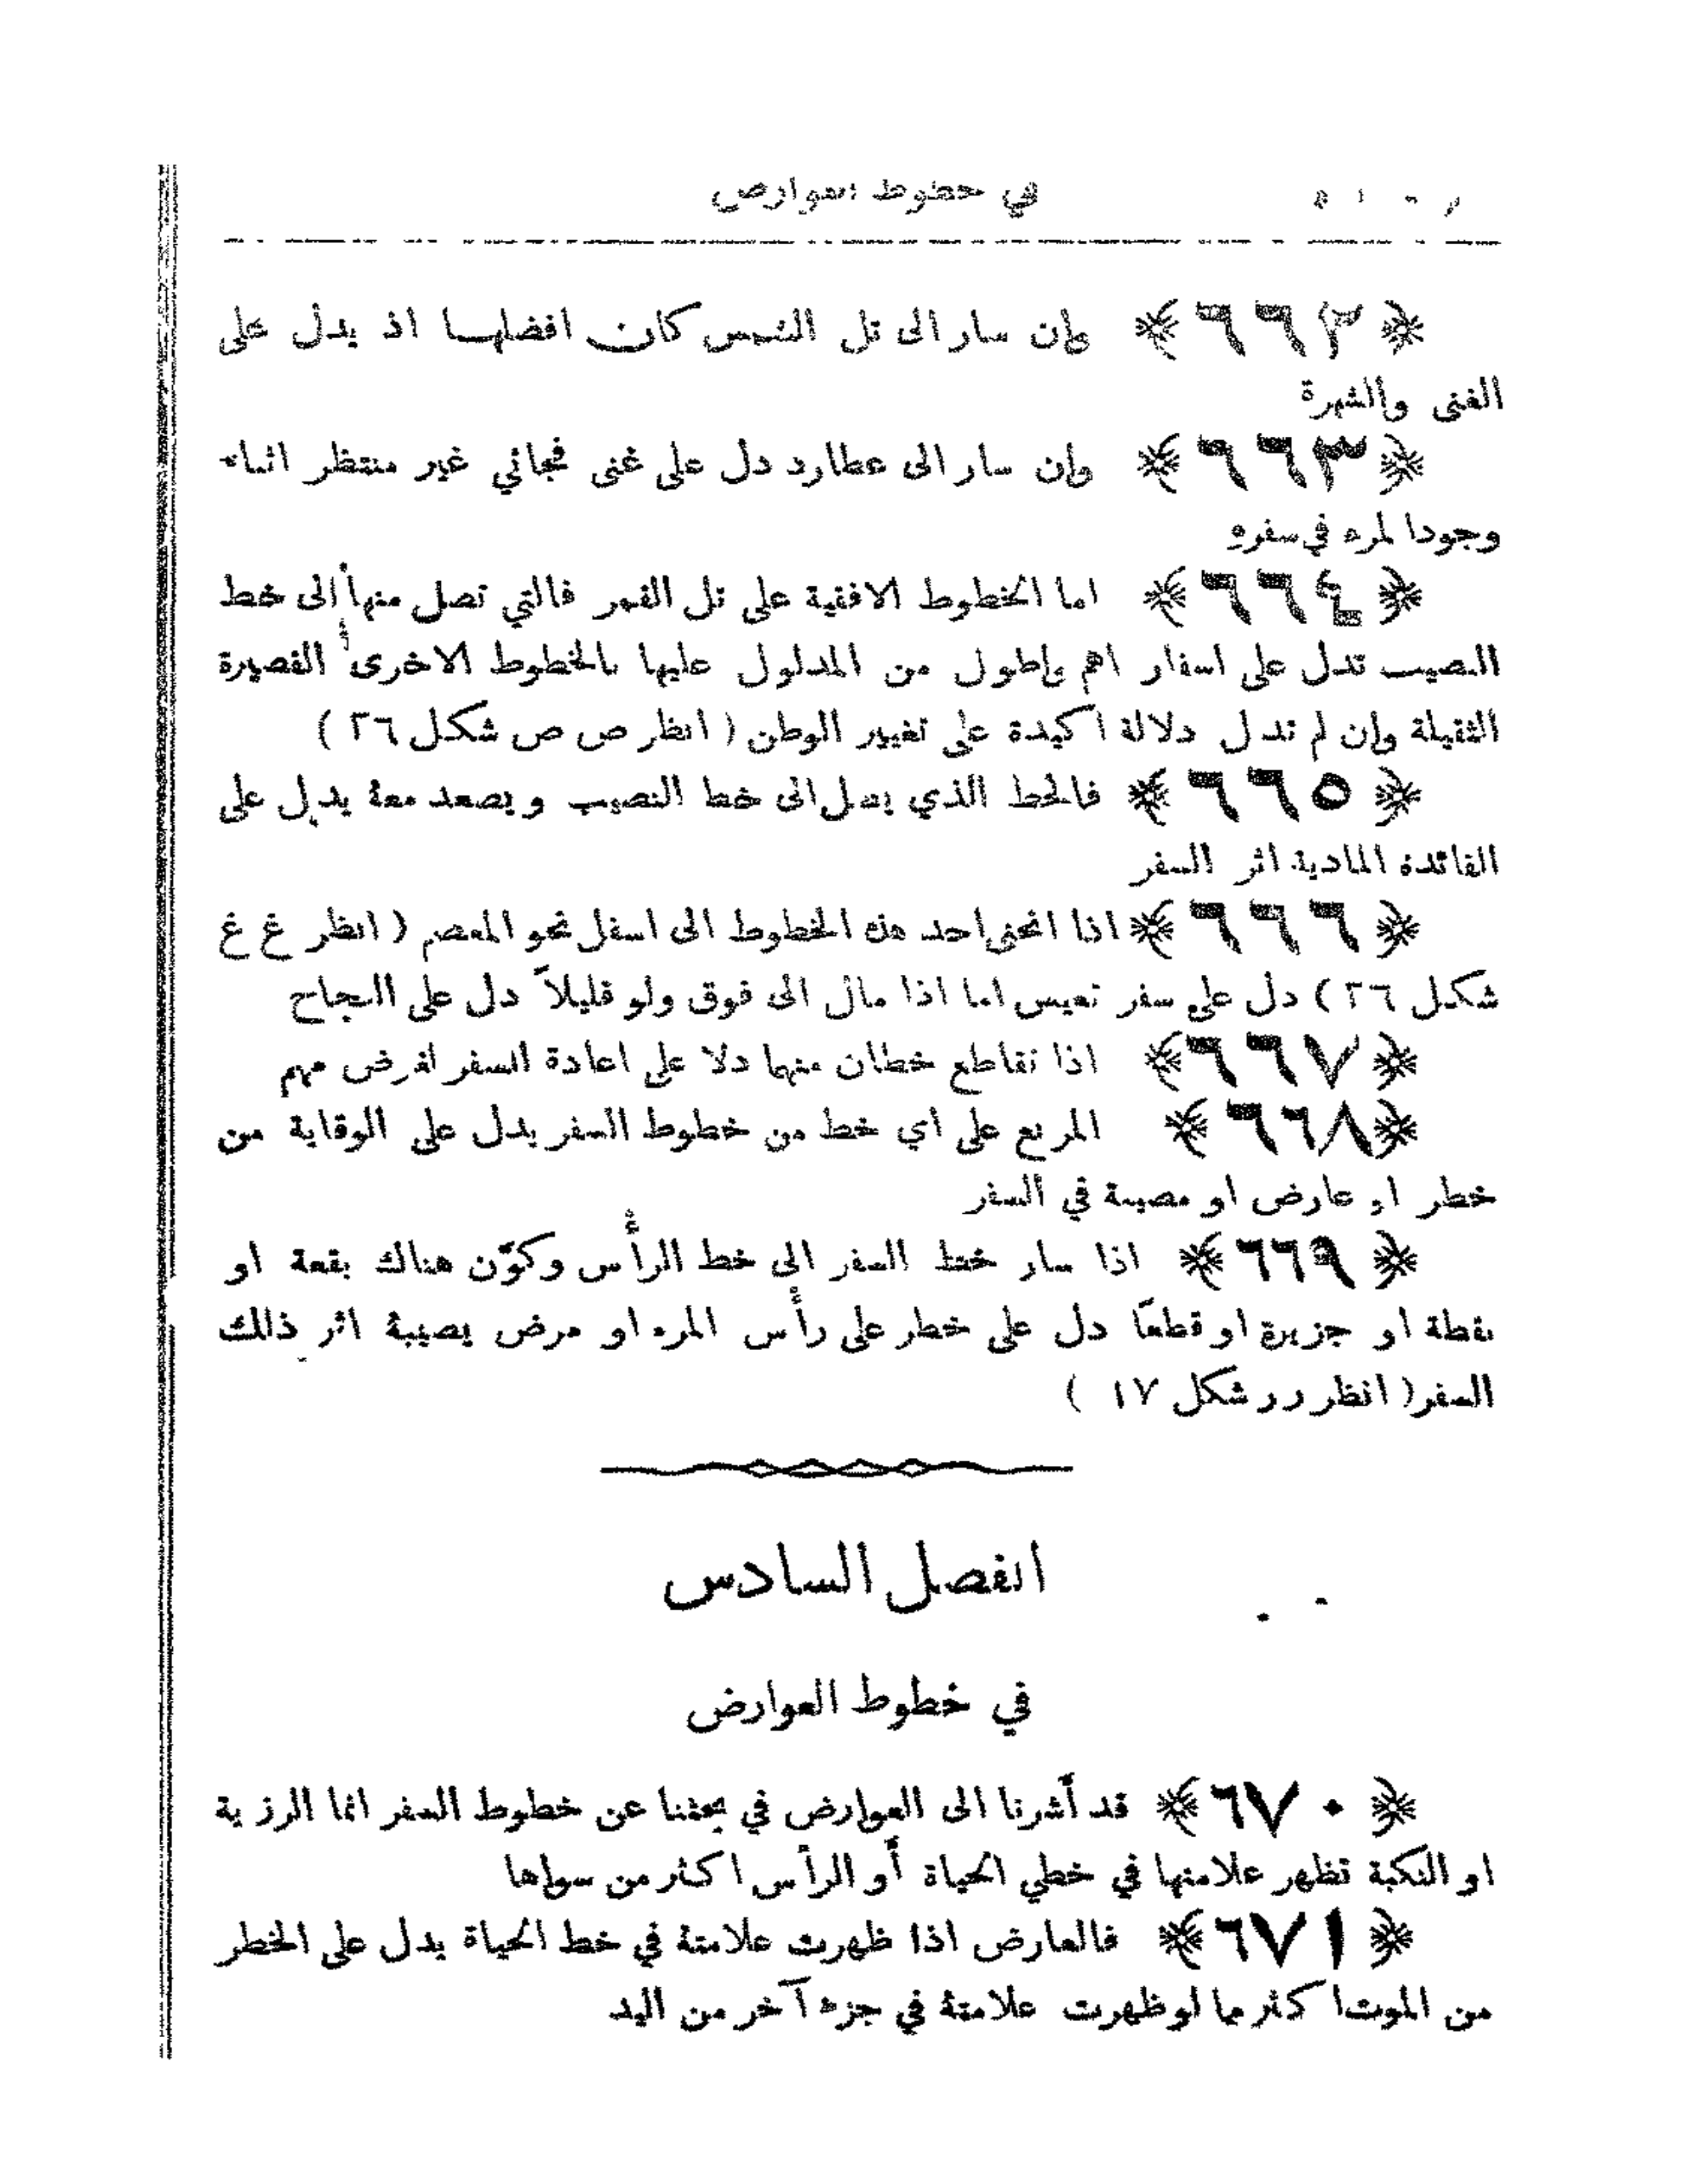 في خطوط العوارض
﴿٦٦٢﴾ وإن سار الى تل الشمس كان افضلها اذ يدل على
الغنى والشهرة
﴿٦٦٣﴾ وإن سار الى عطارد دل على غنى فجائي غير منتظر اثناء
وجود المرء في سفره
﴿٦٦٤﴾ اما الخطوط الافقية على تل القمر فالتي تصل منها إلى خط
النصيب تدل على اسفار اهم واطول من المدلول عليها بالخطوط الاخرى القصيرة
الثقيلة وإن لم تدل دلالة اكيدة على تغيير الوطن ( انظر ص ص شكل ٢٦ )
﴿٦٦٥﴾ فالخط الذي يصل الى خط النصيب ويصعد معهُ يدل على
الفائدة المادية اثر السفر
﴿٦٦٦﴾ اذا انحنى احد هذه الخطوط الى اسفل نحو المعصم ( انظر غ غ
شكل ٢٦ ) دل على سفر تعيس اما اذا مال الى فوق ولو قليلاً دل على النجاح
﴿٦٦٧﴾ اذا تقاطع خطان منهما دلا على اعادة السفر لغرض مهم
﴿٦٦٨﴾ المربع على اي خط من خطوط السفر يدل على الوقاية من
خطر او عارض او مصيبة في السفر
﴿٦٦٩﴾ اذا سار خط السفر الى خط الرأس وكوّن هناك بقعة او
نقطة او جزيرة او قطعًا دل على خطر على رأس المرء او مرض يصيبهُ اثر ذلك
السفر ( انظر ر ر شكل ١٧ )
الفصل السادس
في خطوط العوارض
﴿٦٧٠﴾ قد أشرنا الى العوارض في بحثنا عن خطوط السفر انما الرزية
او النكبة تظهر علامتها في خطي الحياة أو الرأس اكثر من سواها
﴿٦٧١﴾ فالعارض اذا ظهرت علامتهُ في خط الحياة يدل على الخطر
من الموت اكثر مما لو ظهرت علامتهُ في جزء آخر من اليد